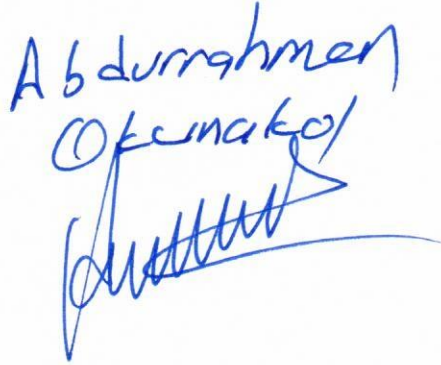 Abdurrahmen
Okunakol